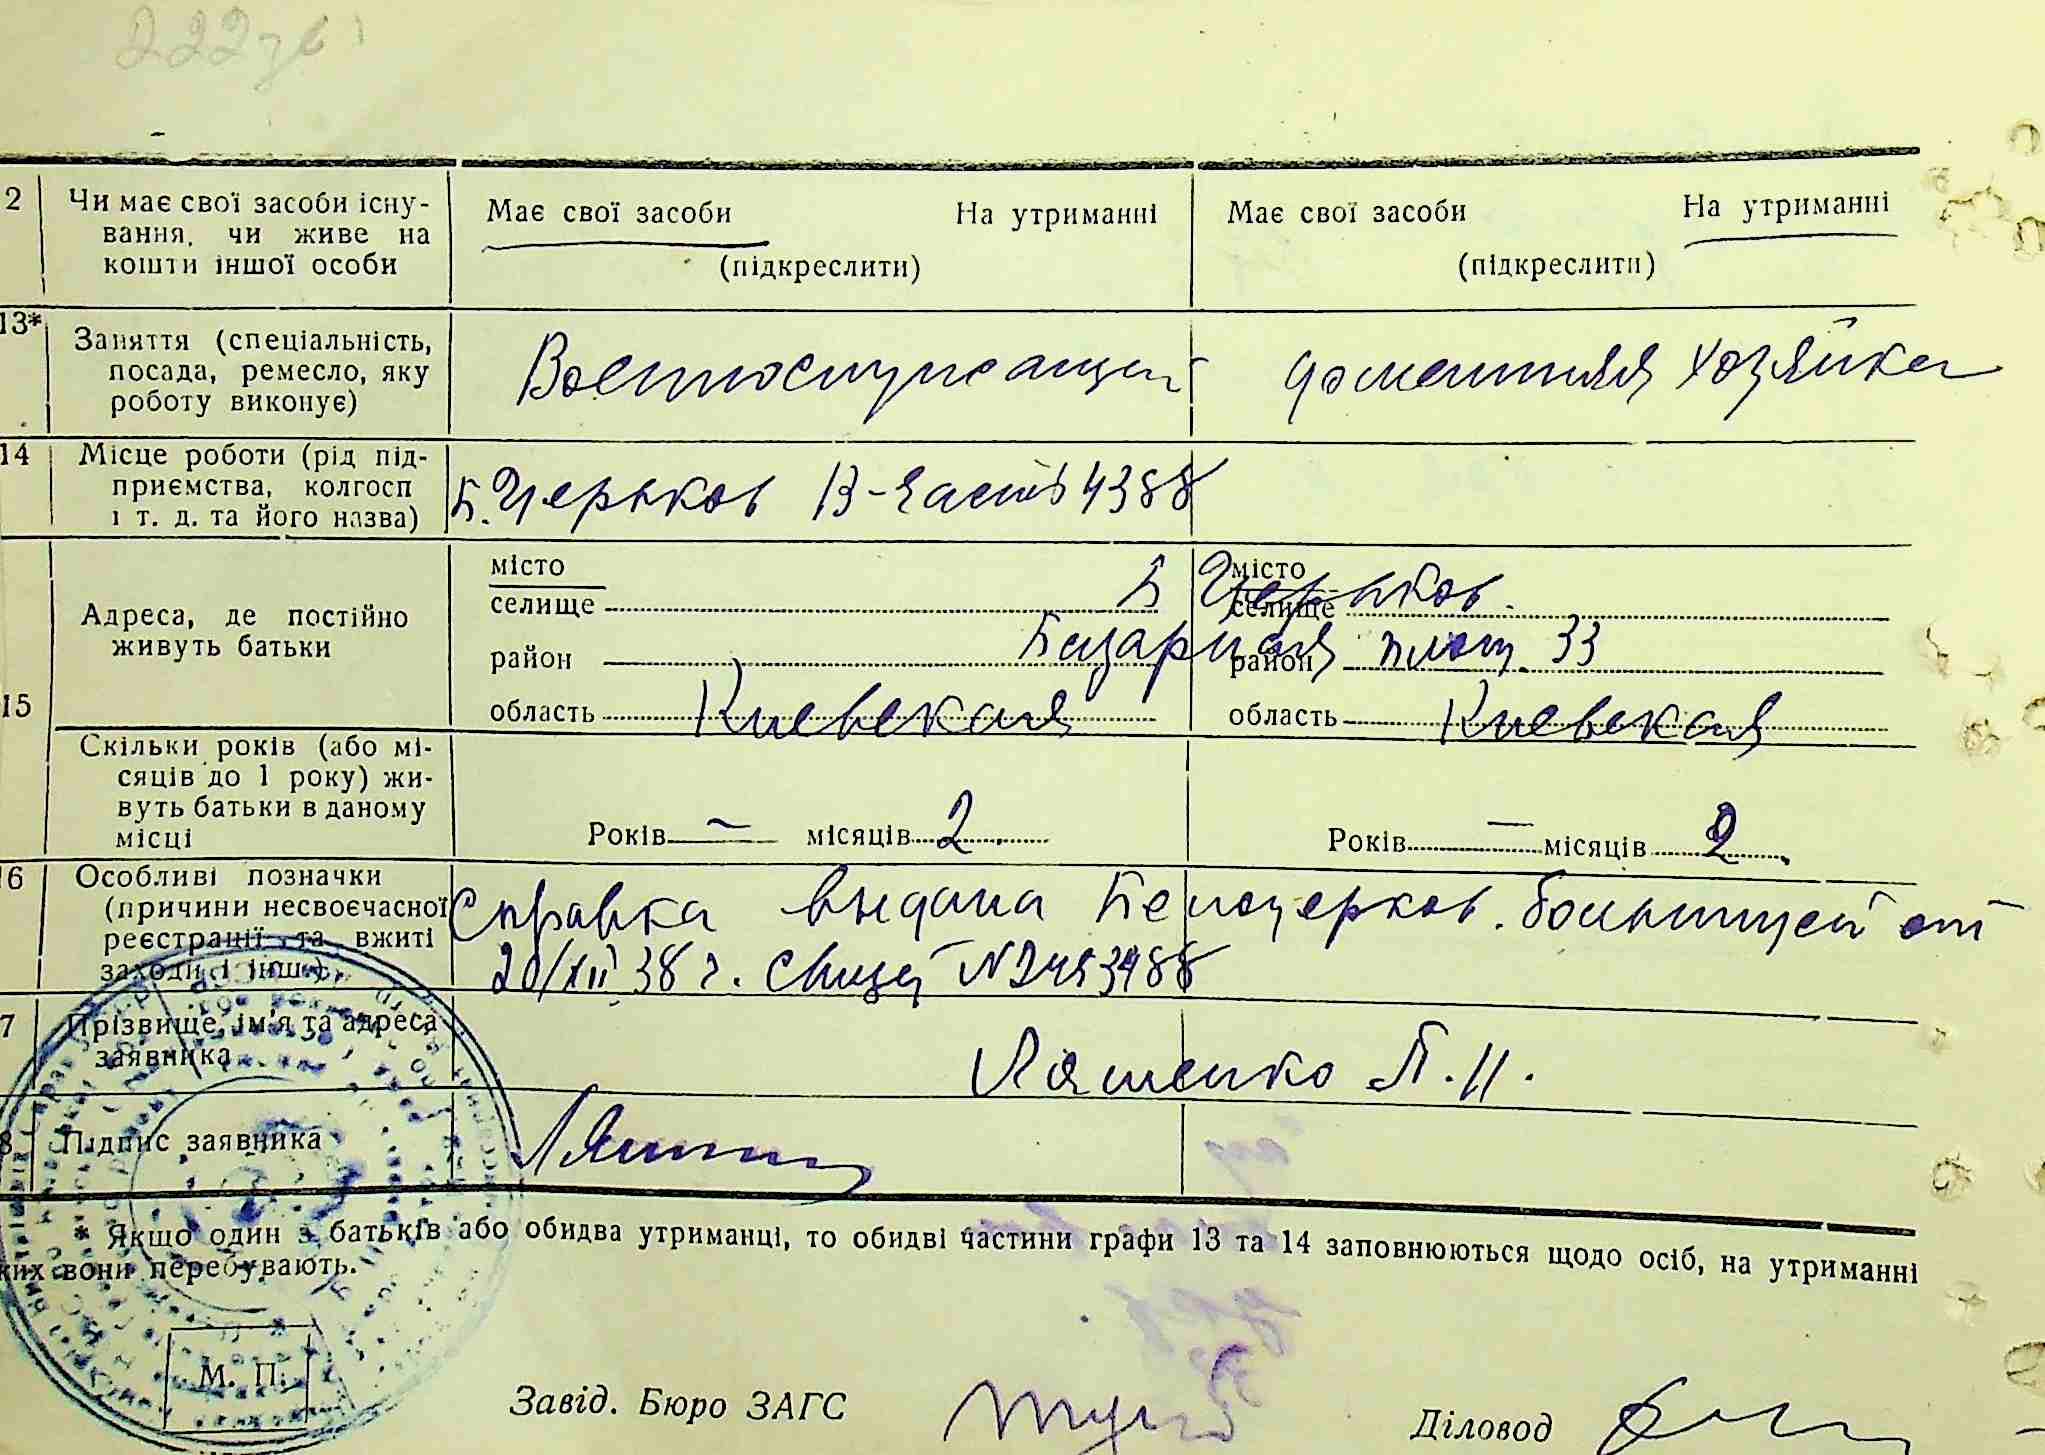 222
2 Чи має свої засоби існу-
вання, чи живе на
кошти іншої особи
Має свої засоби На утриманні
(підкреслити)
Має свої засоби На утриманні
(підкреслити)
13* Заняття (спеціальність,
посада, ремесло, яку
роботу виконує)
Военнослужащий
домашняя хозяйка
14 Місце роботи (рід під-
приємства, колгосп
і т. д. та його назва)
Б. Церьков В-часть 4388
15 Адреса, де постійно
живуть батьки
місто
селище
район
область Киевская
місто
селище
район
область Киевская
Б Церьков.
Базарная площ. 33
Скільки років (або мі-
сяців до 1 року) жи-
вуть батьки в даному
місці
Років — місяців 2
Років — місяців 2
16 Особливі позначки
(причини несвоєчасної
реєстрації та вжиті
заходи і інш.)
Справка выдана Белоцерков. больницей от
20/XII 38 г. № 2453488
7 Прізвище, ім'я та адреса
заявника
Ляшенко П. И.
8 Підпис заявника
* Якщо один з батьків або обидва утриманці, то обидві частини графи 13 та 14 заповнюються щодо осіб, на утриманні
ких вони перебувають.
М. П.
Завід. Бюро ЗАГС
Діловод